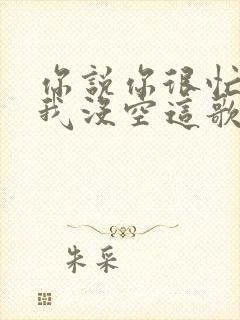 你說你很忙
我沒空這歌
朱采